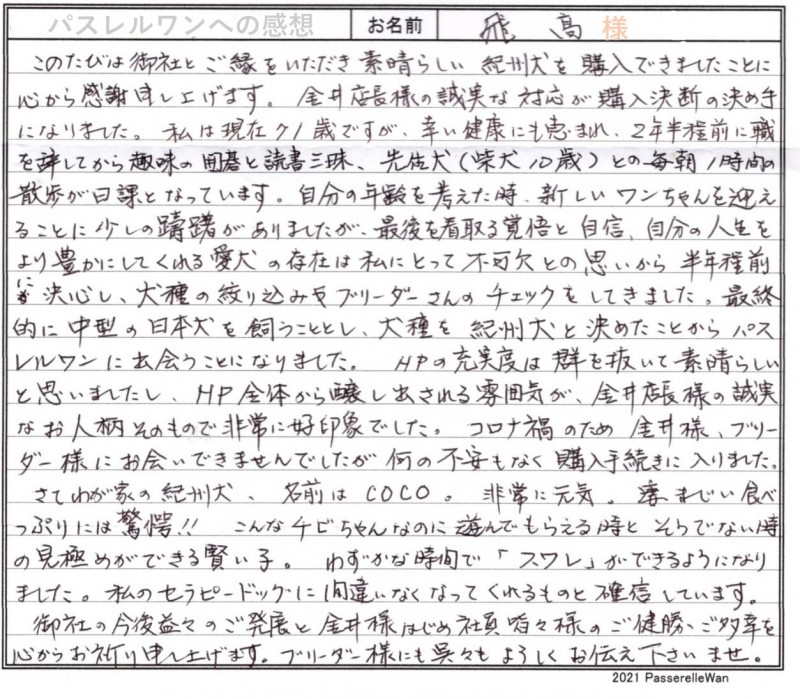 パスレルワンへの感想 お名前 飛高 様
このたびは御社とご縁をいただき素晴らしい紀州犬を購入できましたことに
心から感謝申し上げます。金井店長様の誠実な対応が購入決断の決め手
になりました。私は現在71歳ですが、幸い健康にも恵まれ、2年半程前に職
を辞してから趣味の囲碁と読書三昧、先住犬(柴犬10歳)との毎朝1時間の
散歩が日課となっています。自分の年齢を考えた時、新しいワンちゃんを迎え
ることに少しの躊躇がありましたが、最後を看取る覚悟と自信、自分の人生を
より豊かにしてくれる愛犬の存在は私にとって不可欠との思いから半年程前
に決心し、犬種の絞り込みやブリーダーさんのチェックをしてきました。最終
的に中型の日本犬を飼うこととし、犬種を紀州犬と決めたことからパス
レルワンに出会うことになりました。HPの充実度は群を抜いて素晴らしい
と思いましたし、HP全体から醸し出される雰囲気が、金井店長様の誠実
なお人柄そのもので非常に好印象でした。コロナ禍のため金井様、ブリー
ダー様にお会いできませんでしたが何の不安もなく購入手続きに入りました。
さてわが家の紀州犬、名前はCOCO。非常に元気。凄まじい食べ
っぷりには驚愕!!こんなチビちゃんなのに遊んでもらえる時とそうでない時
の見極めができる賢い子。わずかな時間で「スワレ」ができるようになり
ました。私のセラピードッグに間違いなくなってくれるものと確信しています。
御社の今後益々のご発展と金井様はじめ社員皆々様のご健勝、ご多幸を
心からお祈り申し上げます。ブリーダー様にも呉々もよろしくお伝え下さいませ。
2021 PasserelleWan